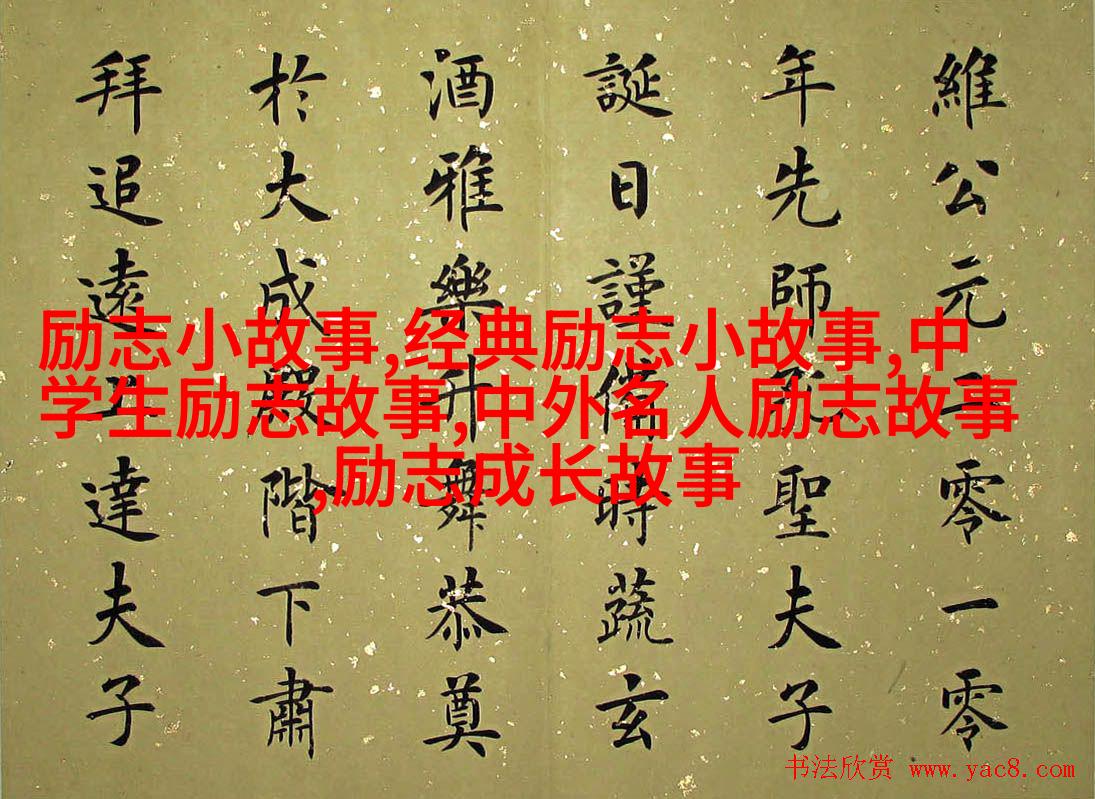 維公元二零一零
年先師孔聖夫子
誕日謹備時蔬玄
酒雅樂升舞恭奠
於大成殿階下肅
拜追遠上達夫子
励志小故事,经典励志小故事,中
学生励志故事,中外名人励志故事
,励志成长故事
书法欣赏 www.yac8.com